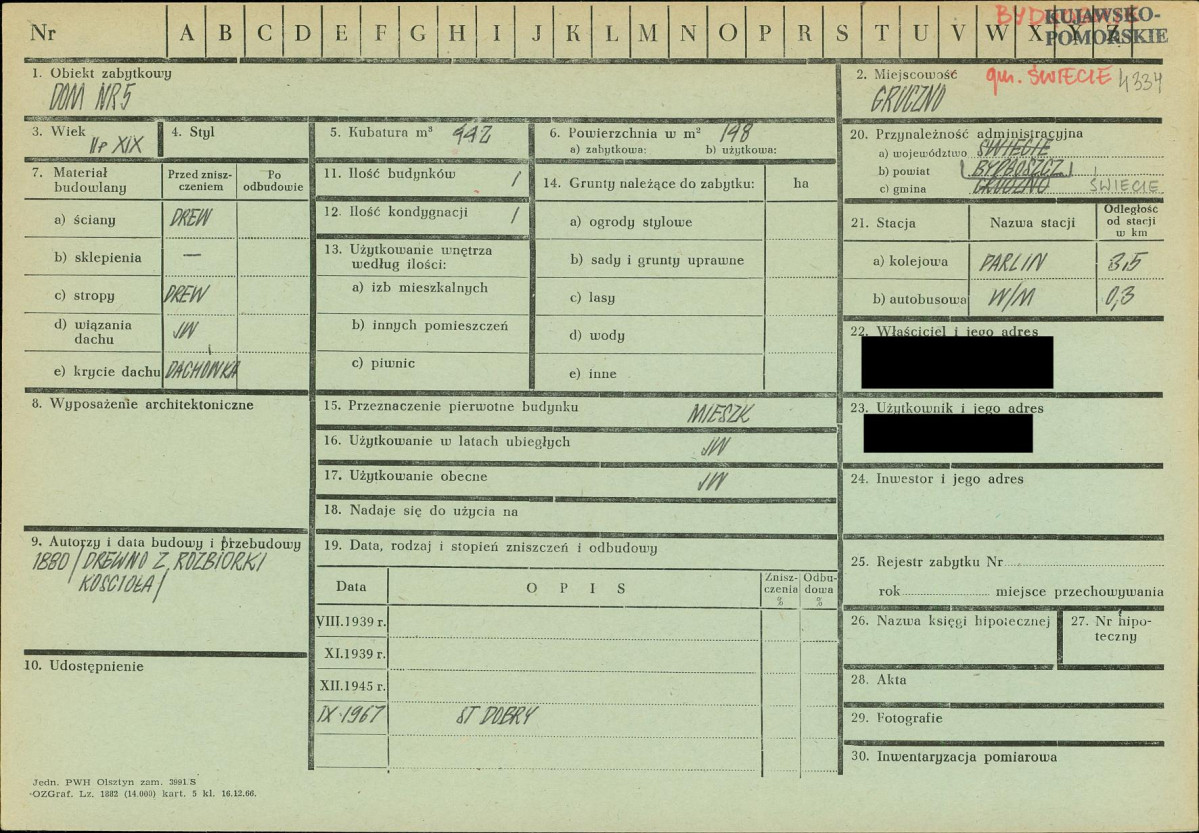 Nr A B C D E F G H I J K L M N O P R S T U V W X Y Z
KUJAWSKO-
POMORSKIE
1. Obiekt zabytkowy
DOM NR 5
2. Miejscowość
gm. ŚWIECIE 4334
GRUCZNO
3. Wiek
II p XIX
4. Styl
5. Kubatura m³ 442
6. Powierzchnia w m² 198
a) zabytkowa: b) użytkowa:
7. Materiał budowlany
Przed znisz-
czeniem
Po
odbudowie
a) ściany DREW
b) sklepienia —
c) stropy DREW
d) wiązania
dachu JW
e) krycie dachu DACHÓWKA
8. Wyposażenie architektoniczne
9. Autorzy i data budowy i przebudowy
1880 / DREWNO Z ROZBIÓRKI
KOŚCIOŁA /
10. Udostępnienie
11. Ilość budynków 1
12. Ilość kondygnacji 1
13. Użytkowanie wnętrza
według ilości:
a) izb mieszkalnych
b) innych pomieszczeń
c) piwnic
14. Grunty należące do zabytku: ha
a) ogrody stylowe
b) sady i grunty uprawne
c) lasy
d) wody
e) inne
15. Przeznaczenie pierwotne budynku MIESZK
16. Użytkowanie w latach ubiegłych JW
17. Użytkowanie obecne JW
18. Nadaje się do użycia na
19. Data, rodzaj i stopień zniszczeń i odbudowy
Data O P I S
Znisz-
czenia
%
Odbu-
dowa
%
VIII.1939 r.
XI.1939 r.
XII.1945 r.
IX.1967 ST DOBRY
20. Przynależność administracyjna
a) województwo ŚWIECIE
b) powiat BYDGOSZCZ
c) gmina GRUCZNO ŚWIECIE
21. Stacja Nazwa stacji
Odległość
od stacji
w km
a) kolejowa PARLIN 3,5
b) autobusowa W/M 0,3
22. Właściciel i jego adres
23. Użytkownik i jego adres
24. Inwestor i jego adres
25. Rejestr zabytku Nr
rok miejsce przechowywania
26. Nazwa księgi hipotecznej
27. Nr hipo-
teczny
28. Akta
29. Fotografie
30. Inwentaryzacja pomiarowa
Jedn. PWH Olsztyn zam. 3991/S
OZGraf. Lz. 1882 (14.000) kart. 5 kl. 16.12.66.